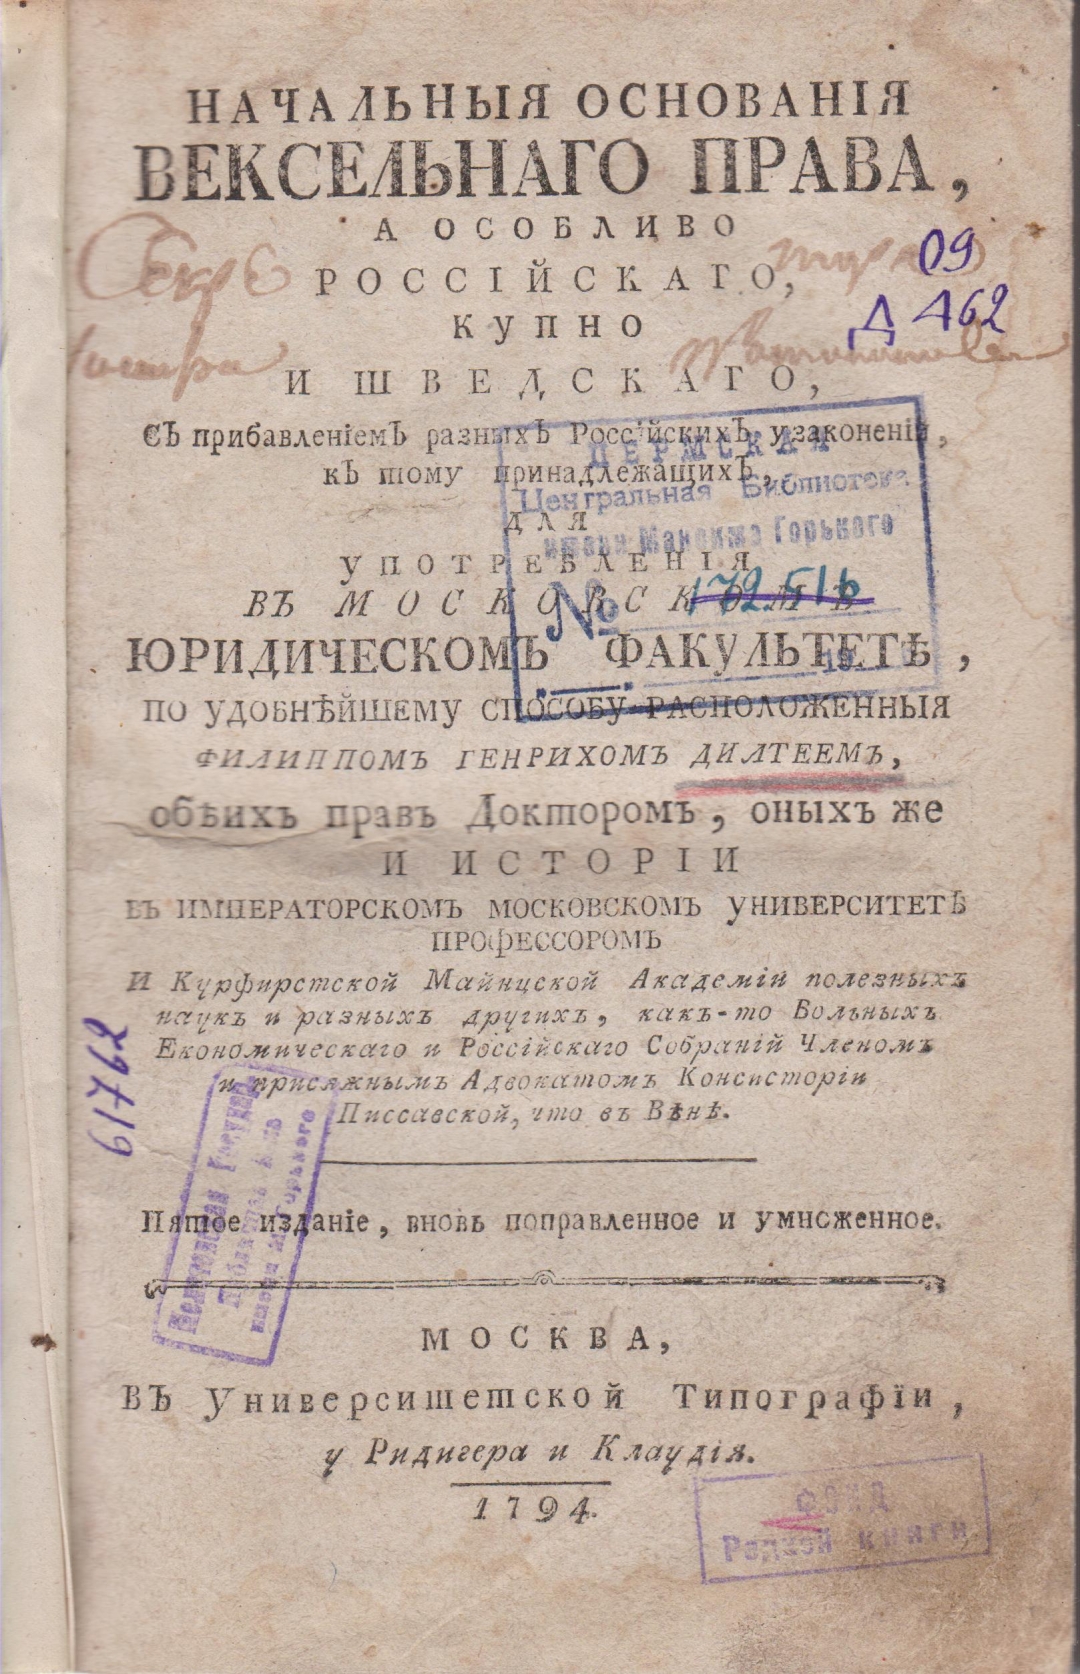 НАЧАЛЬНЫЯ ОСНОВАНІЯ
ВЕКСЕЛЬНАГО ПРАВА,
А ОСОБЛИВО
РОССІЙСКАГО,
КУПНО
И ШВЕДСКАГО,
Съ прибавленіемъ разныхъ Россійскихъ узаконеній,
къ тому принадлежащихъ,
ДЛЯ
УПОТРЕБЛЕНІЯ
ВЪ МОСКОВСКОМЪ
ЮРИДИЧЕСКОМЪ ФАКУЛЬТЕТѢ,
ПО УДОБНѢЙШЕМУ СПОСОБУ РАСПОЛОЖЕННЫЯ
ФИЛИППОМЪ ГЕНРИХОМЪ ДИЛТЕЕМЪ,
обѣихъ правъ Докторомъ, оныхъ же
И ИСТОРІИ
ВЪ ИМПЕРАТОРСКОМЪ МОСКОВСКОМЪ УНИВЕРСИТЕТѢ
ПРОФЕССОРОМЪ
И Курфирстской Майнцской Академіи полезныхъ
наукъ и разныхъ другихъ, какъ-то Вольныхъ
Економическаго и Россійскаго Собраній Членомъ
и присяжнымъ Адвокатомъ Консисторіи
Пассавской, что въ Вѣнѣ.
Пятое изданіе, вновь поправленное и умноженное.
МОСКВА,
Въ Университетской Типографіи,
у Ридигера и Клаудія.
1794.
09
Д 462
ПЕРМСКАЯ
Центральная Библиотека
имени Максима Горького
№ 172516
19
61762
имени М. Горького
ФОНД
Редкой книги